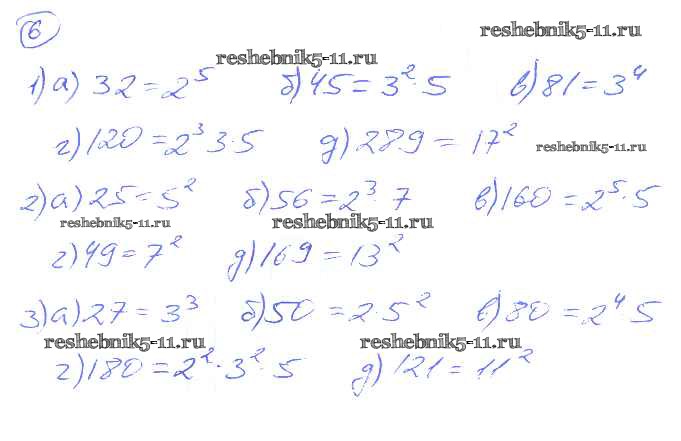 6
reshebnik5-11.ru
reshebnik5-11.ru
1) а) 32 = 2⁵ б) 45 = 3² · 5 в) 81 = 3⁴
г) 120 = 2³ 3 · 5 д) 289 = 17²
reshebnik5-11.ru
2) а) 25 = 5² б) 56 = 2³ · 7 в) 160 = 2⁵ · 5
reshebnik5-11.ru reshebnik5-11.ru
г) 49 = 7² д) 169 = 13²
3) а) 27 = 3³ б) 50 = 2 · 5² в) 80 = 2⁴ · 5
reshebnik5-11.ru reshebnik5-11.ru
г) 180 = 2² · 3² · 5 д) 121 = 11²